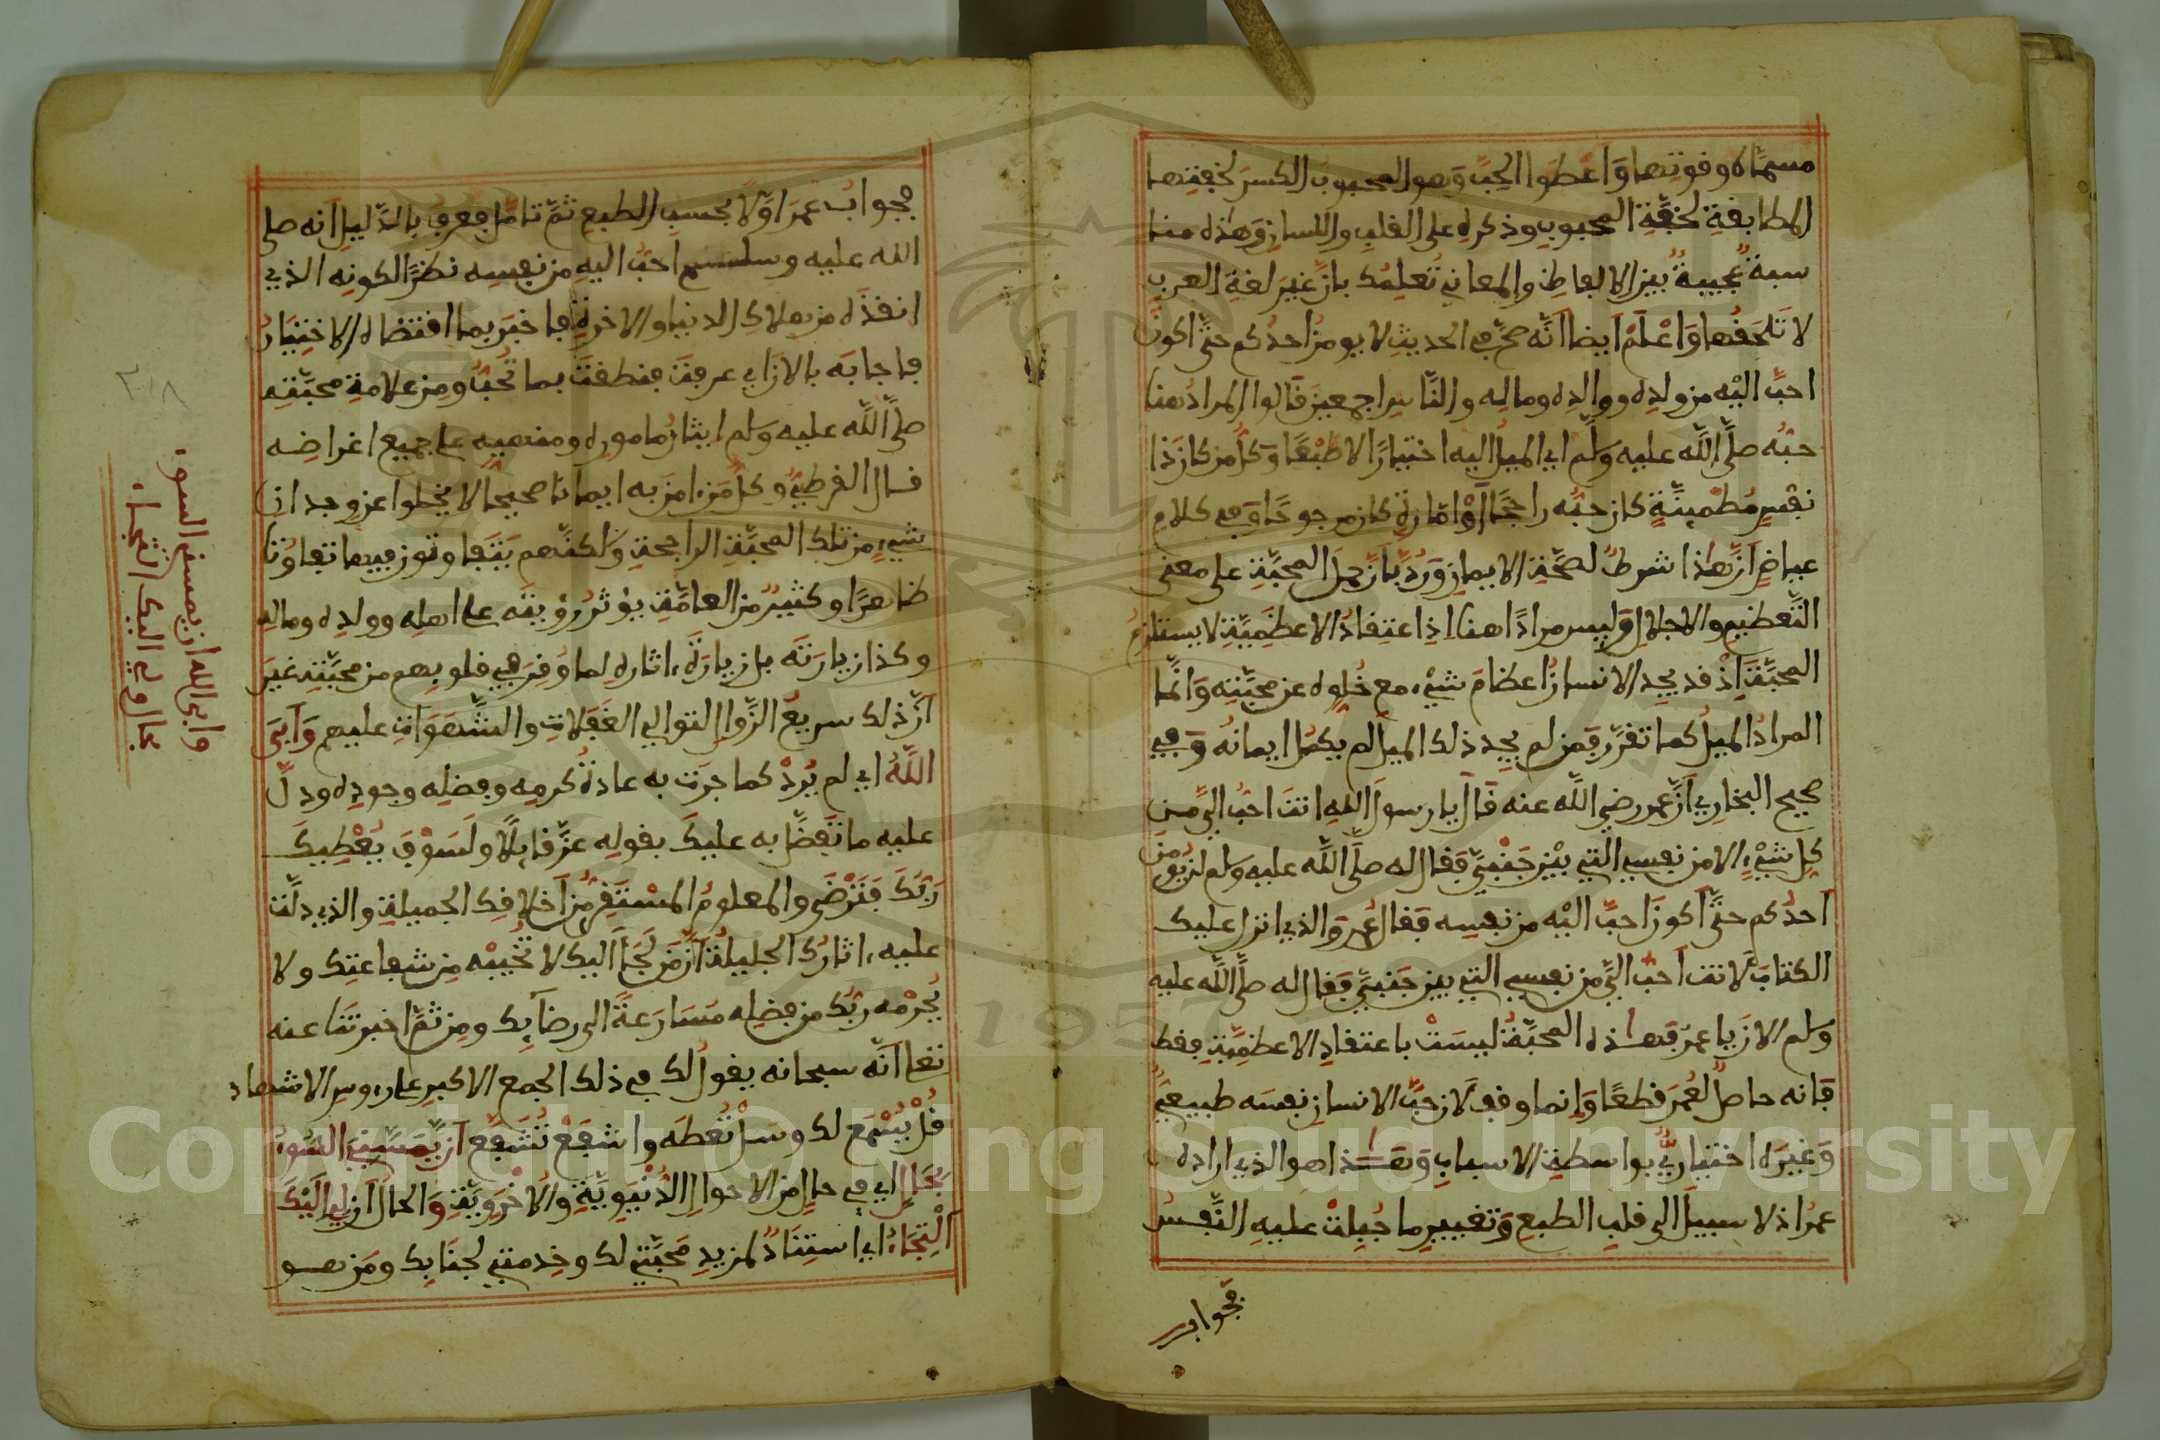 مسماه وقوتها وأعطوا الحِبّ وهو المحبوب الكسر لخفتها
المطابقة لخفة المحبوب وذكره على القلب واللسان وهذه منا
سبة عجيبة بين الالفاظ والمعاني تعلمك بان غير لغة العرب
لا تلحقها واعلم ايضا انه صح في الحديث لا يومن احدكم حتى اكون
احب اليه من ولده ووالده وماله والناس اجمعين قالوا المراد هنا
حبه صلى الله عليه وسلم اي الميل اليه اختيارا لا طبعا وكل من كان ذا
نفس مطمينة كان حبه راجحا او امارة كان مرجوحا وفي كلام
عياض ان هذا شرط لصحة الايمان ورد بان حمل المحبة على معنى
التعظيم والاجلال وليس مرادا هنا اذ اعتقاد الاعظمية لا يستلزم
المحبة اذ قد يجد الانسان اعظام شيء مع خلوه عن محبته وانما
المراد الميل كما تقرر فمن لم يجد ذلك الميل لم يكمل ايمانه وفي
صحيح البخاري ان عمر رضي الله عنه قال يا رسول الله انت احب الي من
كل شيء الا من نفسي التي بين جنبي فقال له صلى الله عليه وسلم لن يومن
احدكم حتى اكون احب اليه من نفسه فقال عمر والذي انزل عليك
الكتاب لانت احب الي من نفسي التي بين جنبي فقال له صلى الله عليه
وسلم الان يا عمر فهذه المحبة ليست باعتقاد الاعظمية فقط
فانه حاصل لعمر قطعا وانما وقف لان حب الانسان نفسه طبيعي
وغيره اختياري بواسطة الاسباب وهذا هو الذي اراده
عمر اذ لا سبيل الى قلب الطبع وتغيير ما جبلت عليه النفس
فجواب
فجواب عمر اولا بحسب الطبع ثم تامل فعرف بالدليل انه صلى
الله عليه وسلم احب اليه من نفسه نظرا لكونه الذي
انقذه من هلاك الدنيا والاخرة فاخبر بما اقتضاه الاختيار
فاجابه بالان اي عرفت فنطقت بما تحب ومن علامة محبته
صلى الله عليه وسلم ايثار ماموره ومنهييه على جميع اغراضه
قال القرطبي وكل من ءامن به ايمانا صحيحا لا يخلوا عن وجدان
شيء من تلك المحبة الراجحة ولكنهم يتفاوتون فيها تفاوتا
ظاهرا وكثير من العامة يؤثر رؤيته على اهله وولده وماله
وكذا زيارته بل زيارة ءاثاره لما وقر في قلوبهم من محبته غير
ان ذلك سريع الزوال لتوالي الغفلات والشهوات عليهم وابى
الله اي لم يرد كما جرت به عادة كرمه وفضله وجوده ودل
عليه ما تفضل به عليك بقوله عز قايلا ولسوف يعطيك
ربك فترضى والمعلوم المستقر من اخلاقك الجميلة والذي دلت
عليه ءاثارك الجليلة ان من لجأ اليك لا تخيبه من شفاعتك ولا
يحرمه ربك من فضله مسارعة الى رضايك ومن ثم اخبرتنا عنه
تعلى انه سبحانه يقول لك في ذلك الجمع الاكبر على رءوس الاشهاد
قل يسمع لك وسل تعطه واشفع تشفع ان يمسني السوء
بحال اي في حال من الاحوال الدنيوية والاخروية والحال ان لي اليك
التجاء اي استناد لمزيد محبتي لك وخدمتي لجنابك ومن هو
٢٠٨
وابى الله ان يمسني السوء
بحال ولي اليك التجاء
Copyright © King Saud University
1957